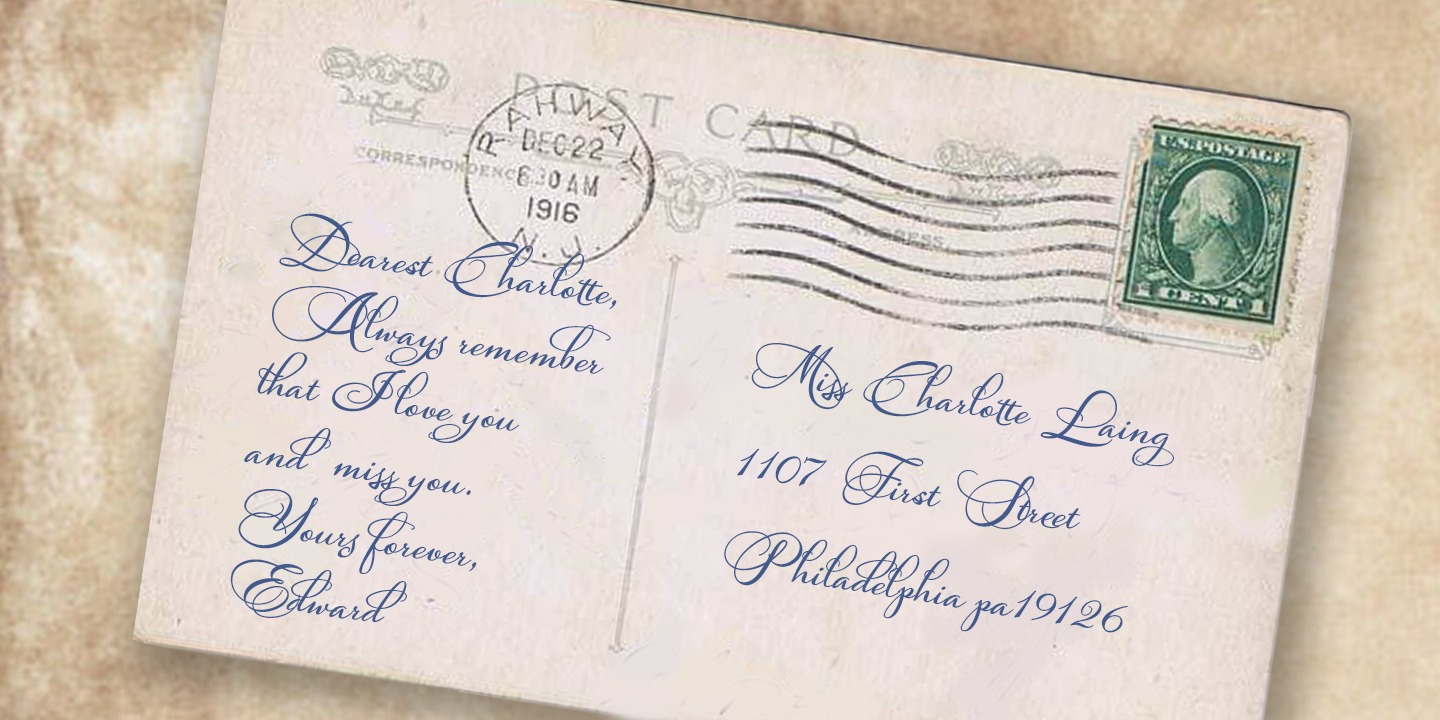 POST CARD
CORRESPONDENCE
RAHWAY
DEC 22
6:30 AM
1916
N.J.
U.S. POSTAGE
1 CENT 1
Dearest Charlotte,
Always remember
that I love you
and miss you.
Yours forever,
Edward
Miss Charlotte Laing
1107 First Street
Philadelphia pa 19126